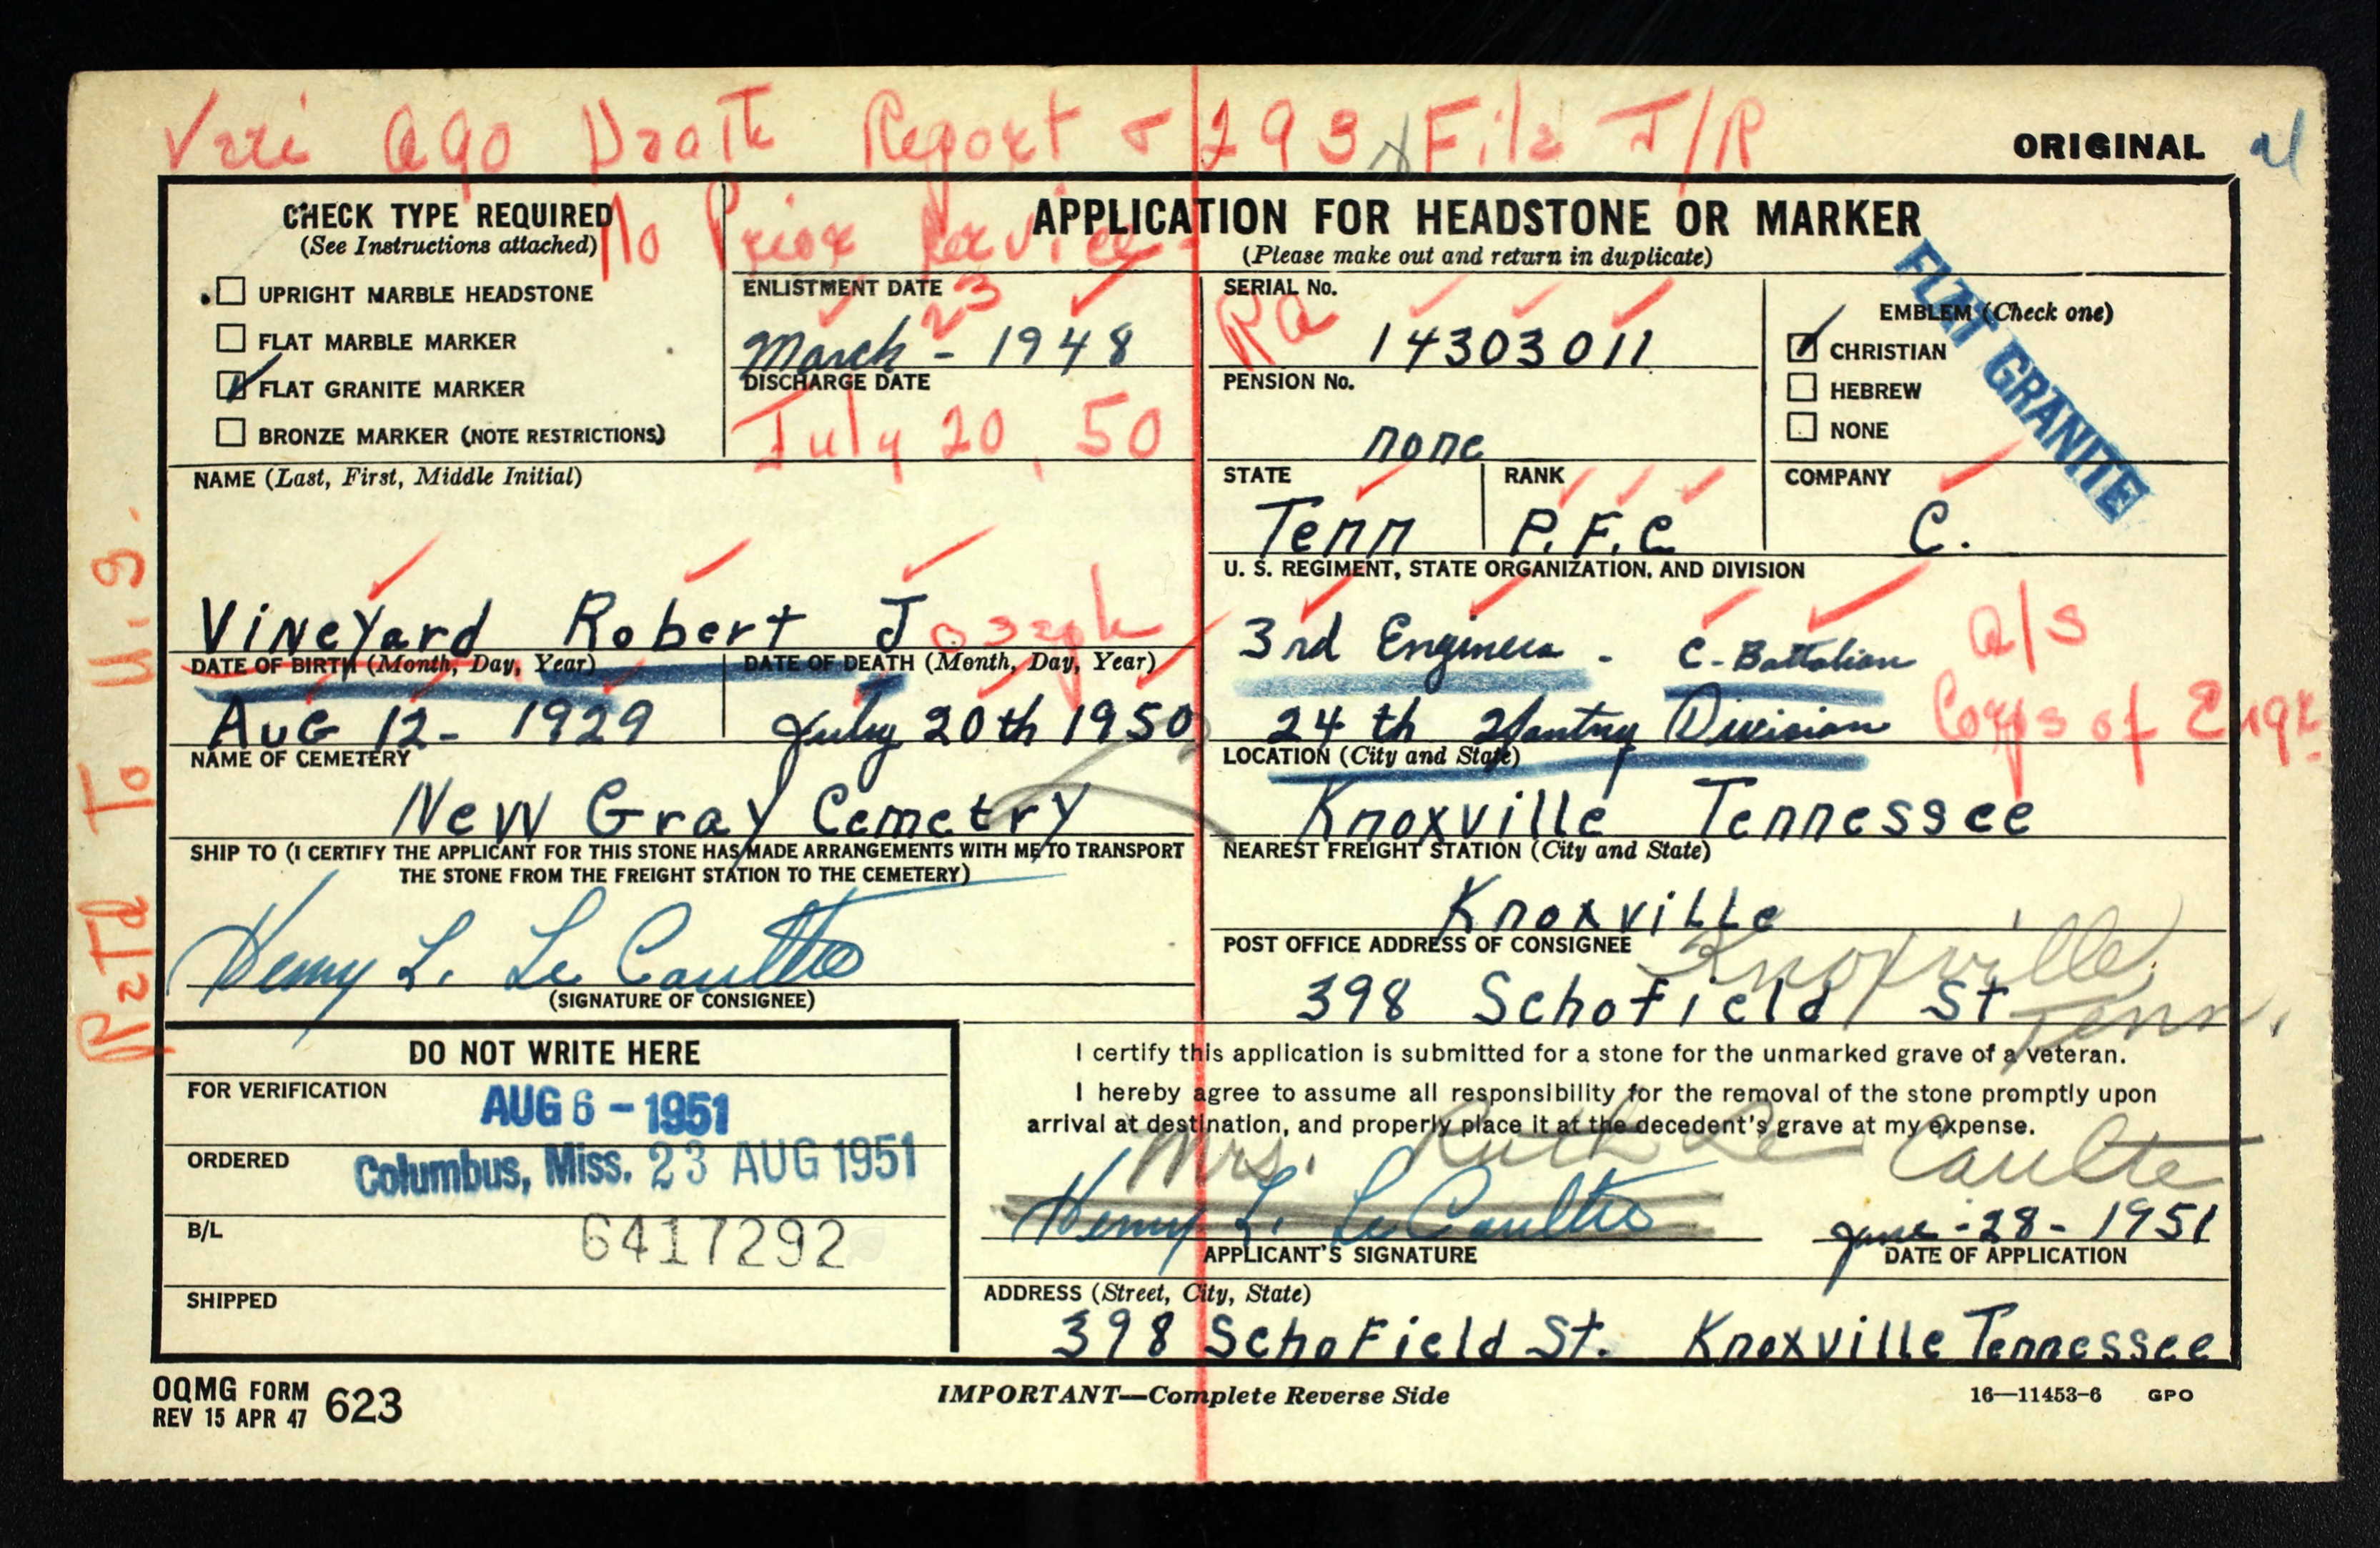 Veri AGO Death Report & 293 File J/R
ORIGINAL
CHECK TYPE REQUIRED
(See Instructions attached)
No Prior Service
APPLICATION FOR HEADSTONE OR MARKER
(Please make out and return in duplicate)
UPRIGHT MARBLE HEADSTONE
FLAT MARBLE MARKER
FLAT GRANITE MARKER
BRONZE MARKER (NOTE RESTRICTIONS)
ENLISTMENT DATE
March - 23 1948
DISCHARGE DATE
July 20, 50
SERIAL No.
RA 14303011
PENSION No.
none
EMBLEM (Check one)
CHRISTIAN
HEBREW
NONE
FLAT GRANITE
NAME (Last, First, Middle Initial)
Vineyard Robert Joseph
STATE
Tenn
RANK
P.F.C
COMPANY
C.
U. S. REGIMENT, STATE ORGANIZATION, AND DIVISION
3rd Engineers - C-Battalion
24th Infantry Division
A/S
Corps of Engr.
DATE OF BIRTH (Month, Day, Year)
Aug 12- 1929
DATE OF DEATH (Month, Day, Year)
July 20th 1950
NAME OF CEMETERY
New Gray Cemetry
LOCATION (City and State)
Knoxville Tennessee
SHIP TO (I CERTIFY THE APPLICANT FOR THIS STONE HAS MADE ARRANGEMENTS WITH ME TO TRANSPORT
THE STONE FROM THE FREIGHT STATION TO THE CEMETERY)
Henry L. Le Coultre
(SIGNATURE OF CONSIGNEE)
NEAREST FREIGHT STATION (City and State)
Knoxville
POST OFFICE ADDRESS OF CONSIGNEE
398 Schofield St
Knoxville,
Tenn.
Retd To U.S.
DO NOT WRITE HERE
FOR VERIFICATION
AUG 6 - 1951
ORDERED
Columbus, Miss. 23 AUG 1951
B/L
6417292
SHIPPED
I certify this application is submitted for a stone for the unmarked grave of a veteran.
I hereby agree to assume all responsibility for the removal of the stone promptly upon
arrival at destination, and properly place it at the decedent's grave at my expense.
Mrs. Ruth Le Caulte
Henry L. Le Coultre
APPLICANT'S SIGNATURE
June -28- 1951
DATE OF APPLICATION
ADDRESS (Street, City, State)
398 Schofield St. Knoxville Tennessee
OQMG FORM 623
REV 15 APR 47
IMPORTANT—Complete Reverse Side
16—11453-6 GPO